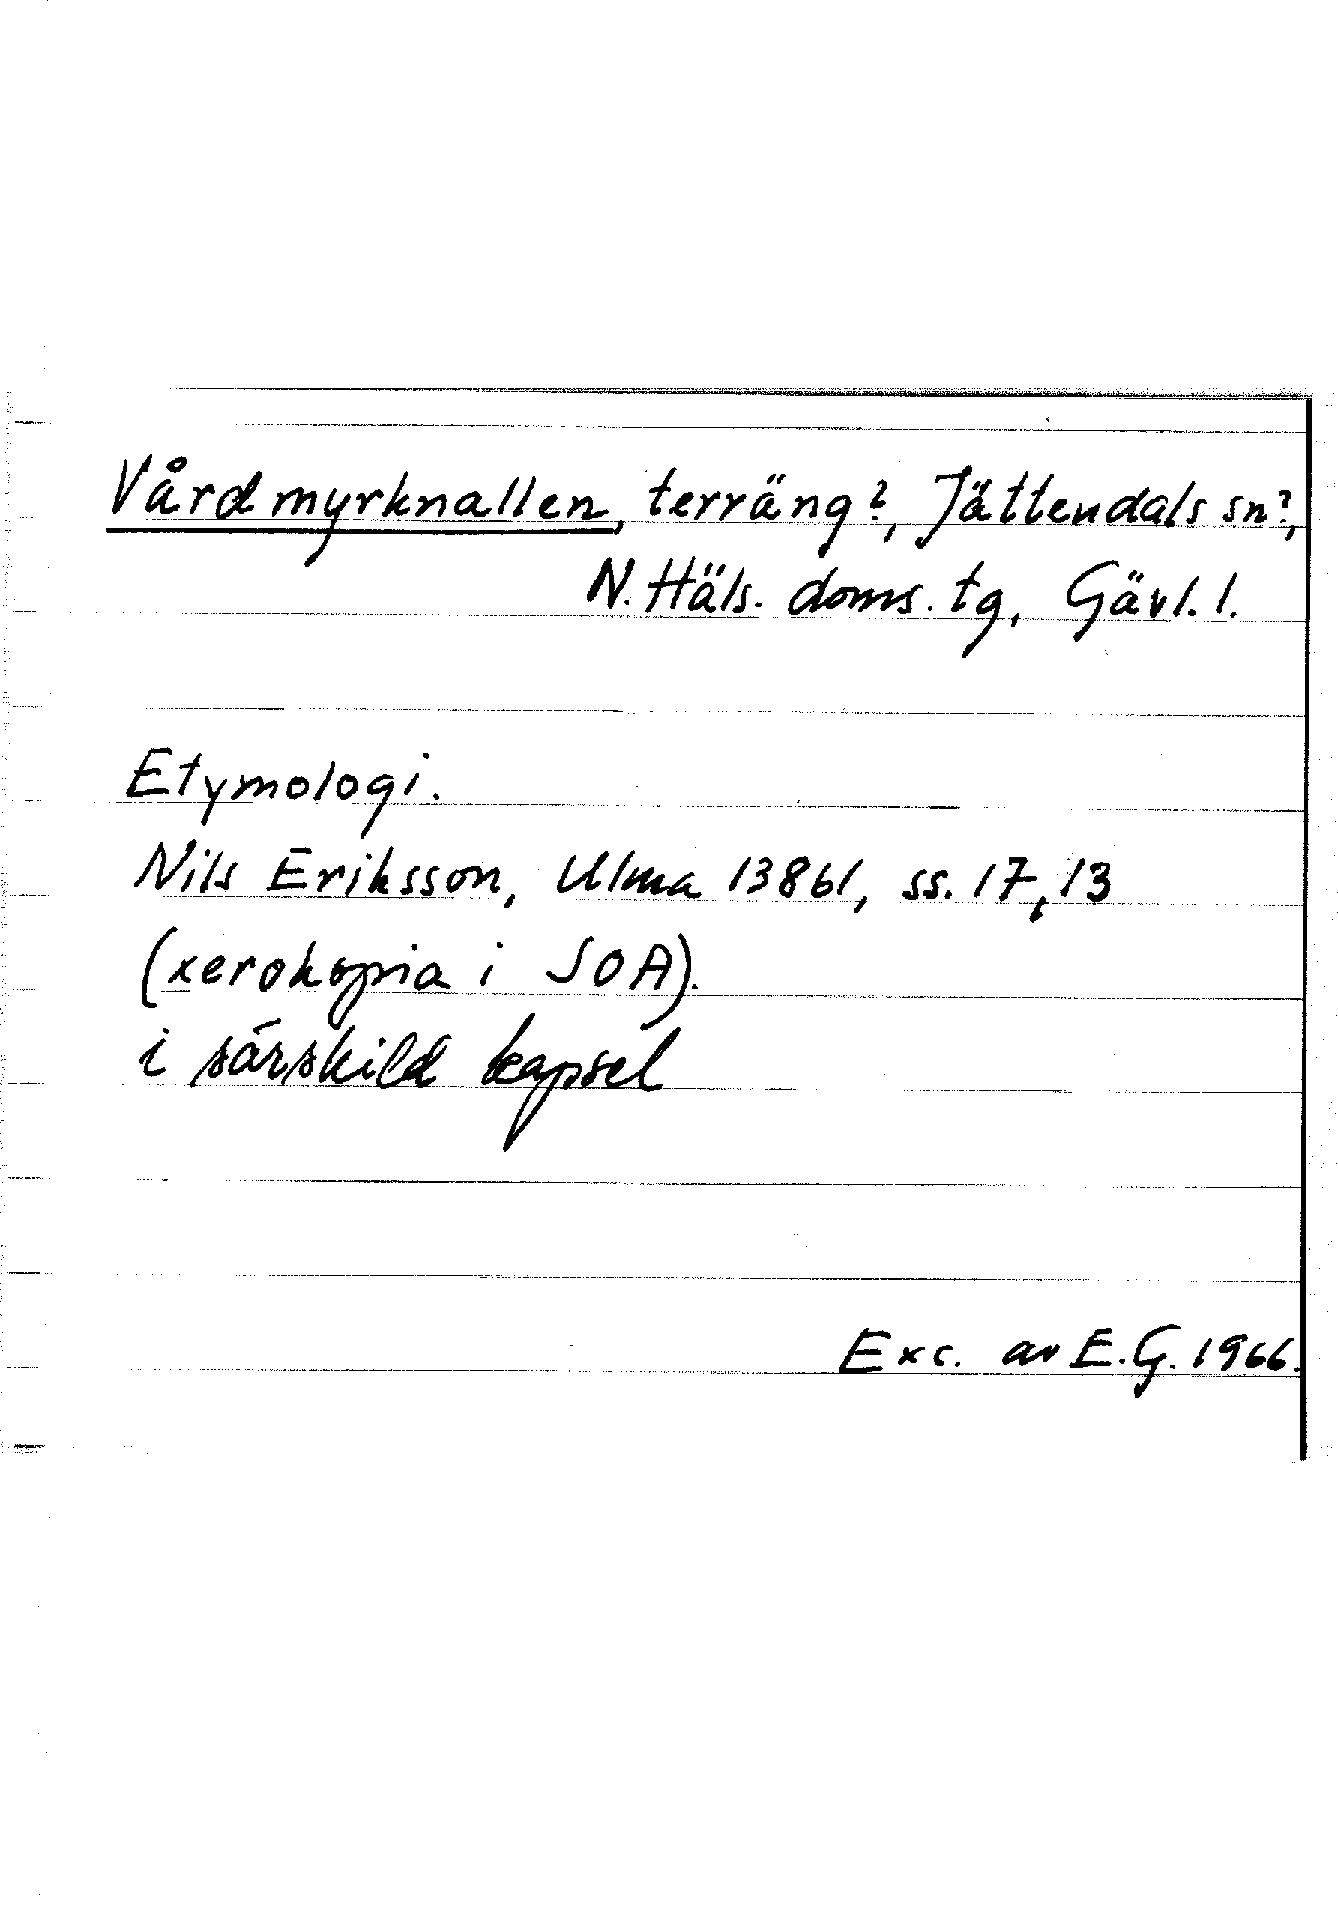 Vårdmyrknallen, terräng?, Jättendals sn?,
N. Häls. doms. tg, Gävl. l.
Etymologi.
Nils Eriksson, Ulma 13861, ss. 17, 13
(xerokopia i SOA).
i särskild kapsel
Exc. av E.G. 1966.